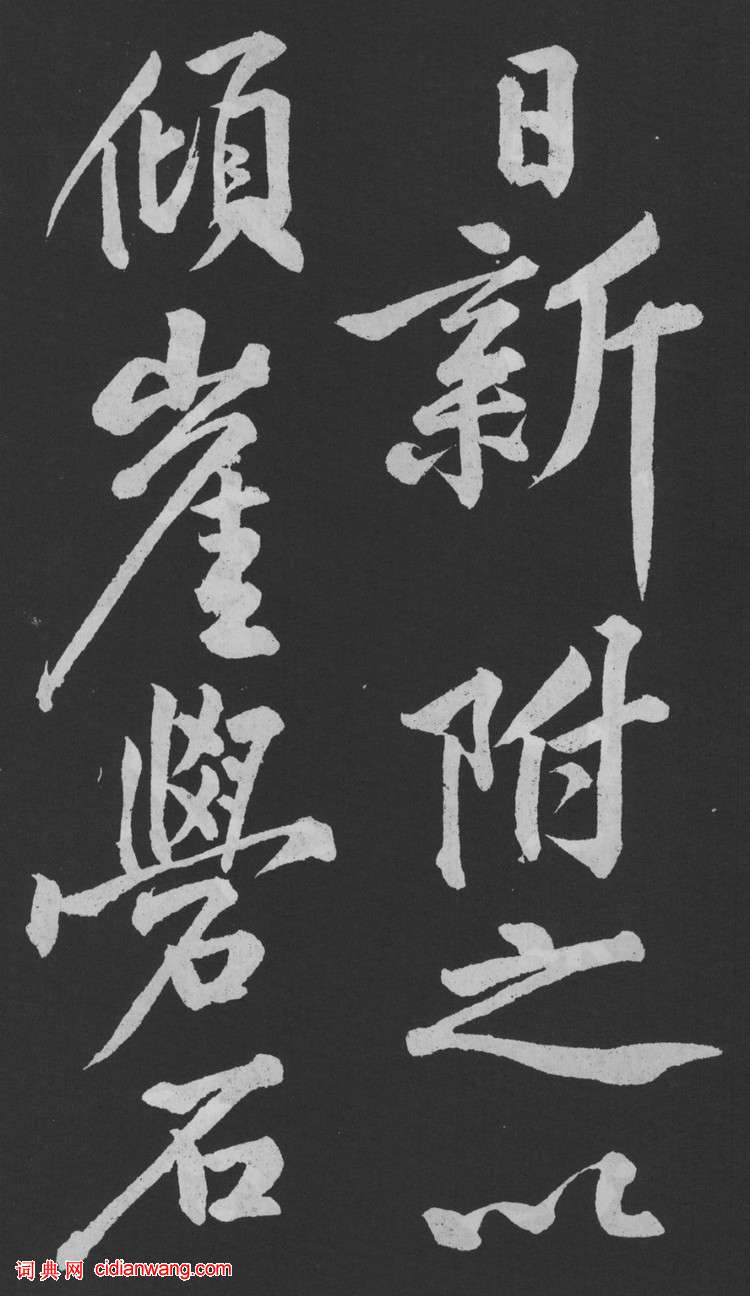 日新附之以
傾崖礐石
词典网 cidianwang.com